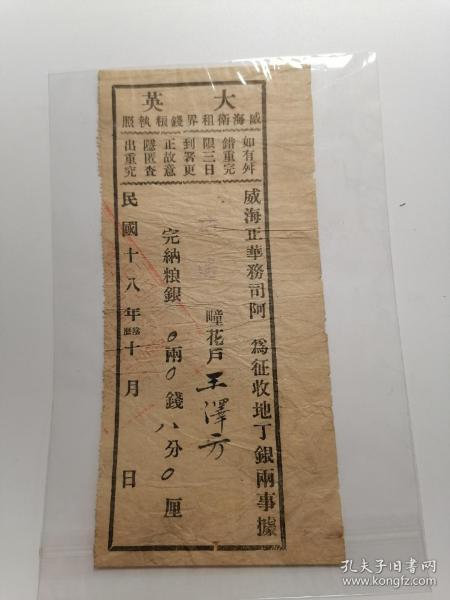 大英
威海衛租界錢粮執照
如有舛
錯重完
限三日
到署更
正故意
隱匿查
出重究
威海正華務司阿 爲征收地丁銀兩事據
疃花戶王澤方
完納粮銀0兩0錢八分0厘
民國十八年陰歷十月 日
孔夫子旧书网
www.kongfz.com